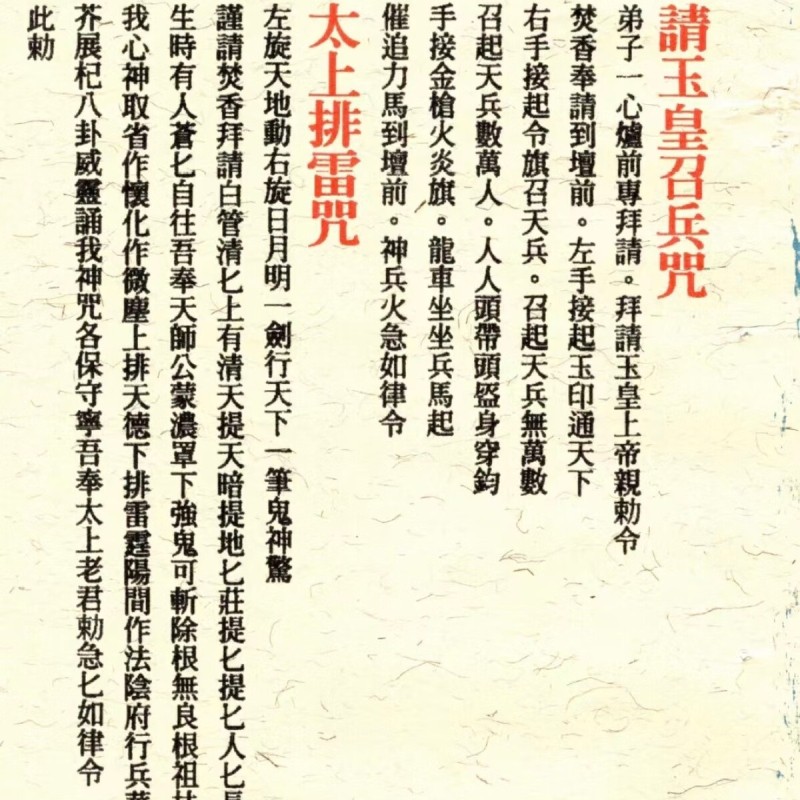 請玉皇召兵咒
弟子一心爐前專拜請。拜請玉皇上帝親勅令
焚香奉請到壇前。左手接起玉印通天下
右手接起令旗召天兵。召起天兵無萬數
召起天兵數萬人。人人頭帶頭盔身穿鈎
手接金槍火炎旗。龍車坐坐兵馬起
催追力馬到壇前。神兵火急如律令
太上排雷咒
左旋天地動右旋日月明一劍行天下一筆鬼神驚
謹請焚香拜請白管清匕上有清天提天暗提地匕莊提匕提匕人匕長
生時有人蒼匕自往吾奉天師公蒙濃罩下強鬼可斬除根無良根祖
我心神取省作懷化作微塵上排天德下排雷霆陽間作法陰府行兵
芥展杞八卦威靈誦我神咒各保守寧吾奉太上老君勅急匕如律令
此勅